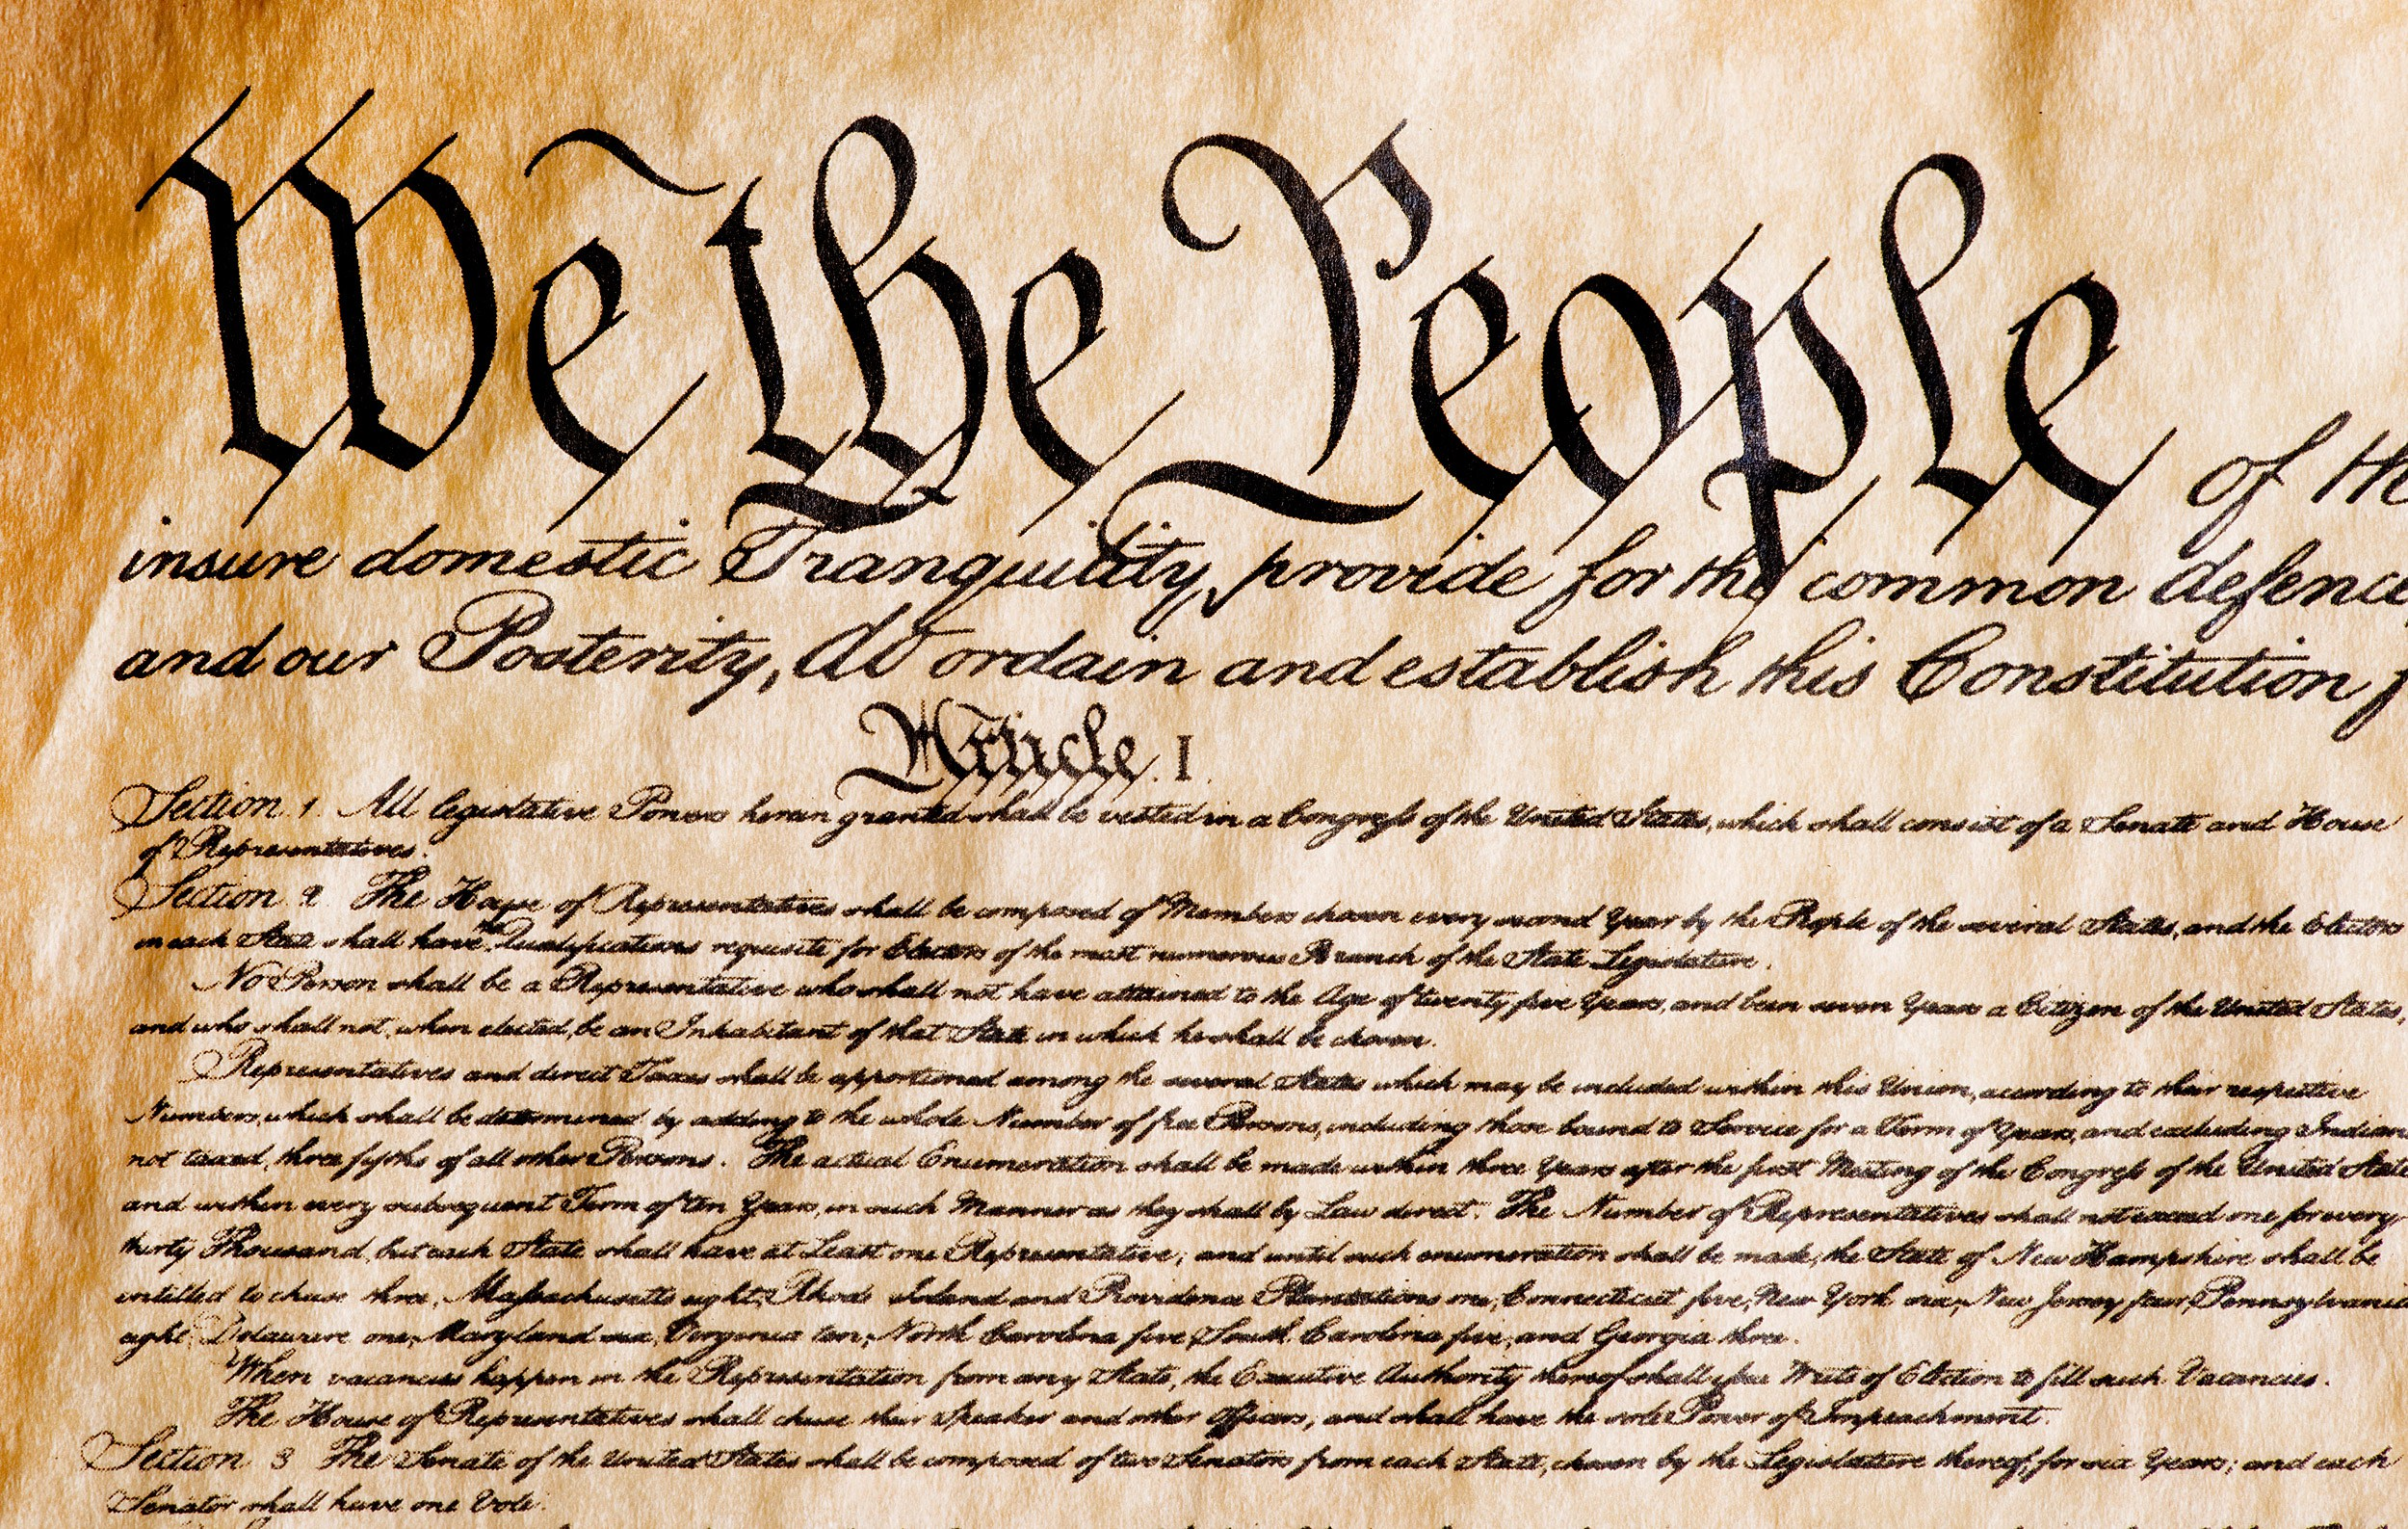 We the People of the
insure domestic Tranquility, provide for the common defence
and our Posterity, do ordain and establish this Constitution f
Article. I.
Section. 1. All legislative Powers herein granted shall be vested in a Congress of the United States, which shall consist of a Senate and House
of Representatives.
Section. 2. The House of Representatives shall be composed of Members chosen every second Year by the People of the several States, and the Electors
in each State shall have the Qualifications requisite for Electors of the most numerous Branch of the State Legislature.
No Person shall be a Representative who shall not have attained to the Age of twenty five Years, and been seven Years a Citizen of the United States,
and who shall not, when elected, be an Inhabitant of that State in which he shall be chosen.
Representatives and direct Taxes shall be apportioned among the several States which may be included within this Union, according to their respective
Numbers, which shall be determined by adding to the whole Number of free Persons, including those bound to Service for a Term of Years, and excluding Indian
not taxed, three fifths of all other Persons. The actual Enumeration shall be made within three Years after the first Meeting of the Congress of the United State
and within every subsequent Term of ten Years, in such Manner as they shall by Law direct. The Number of Representatives shall not exceed one for every
thirty Thousand, but each State shall have at Least one Representative; and until such enumeration shall be made, the State of New Hampshire shall be
entitled to chuse three, Massachusetts eight, Rhode Island and Providence Plantations one, Connecticut five, New York six, New Jersey four, Pennsylvania
eight, Delaware one, Maryland six, Virginia ten, North Carolina five, South Carolina five, and Georgia three.
When vacancies happen in the Representation from any State, the Executive Authority thereof shall issue Writs of Election to fill such Vacancies.
The House of Representatives shall chuse their Speaker and other Officers; and shall have the sole Power of Impeachment.
Section. 3. The Senate of the United States shall be composed of two Senators from each State, chosen by the Legislature thereof, for six Years; and each
Senator shall have one Vote.